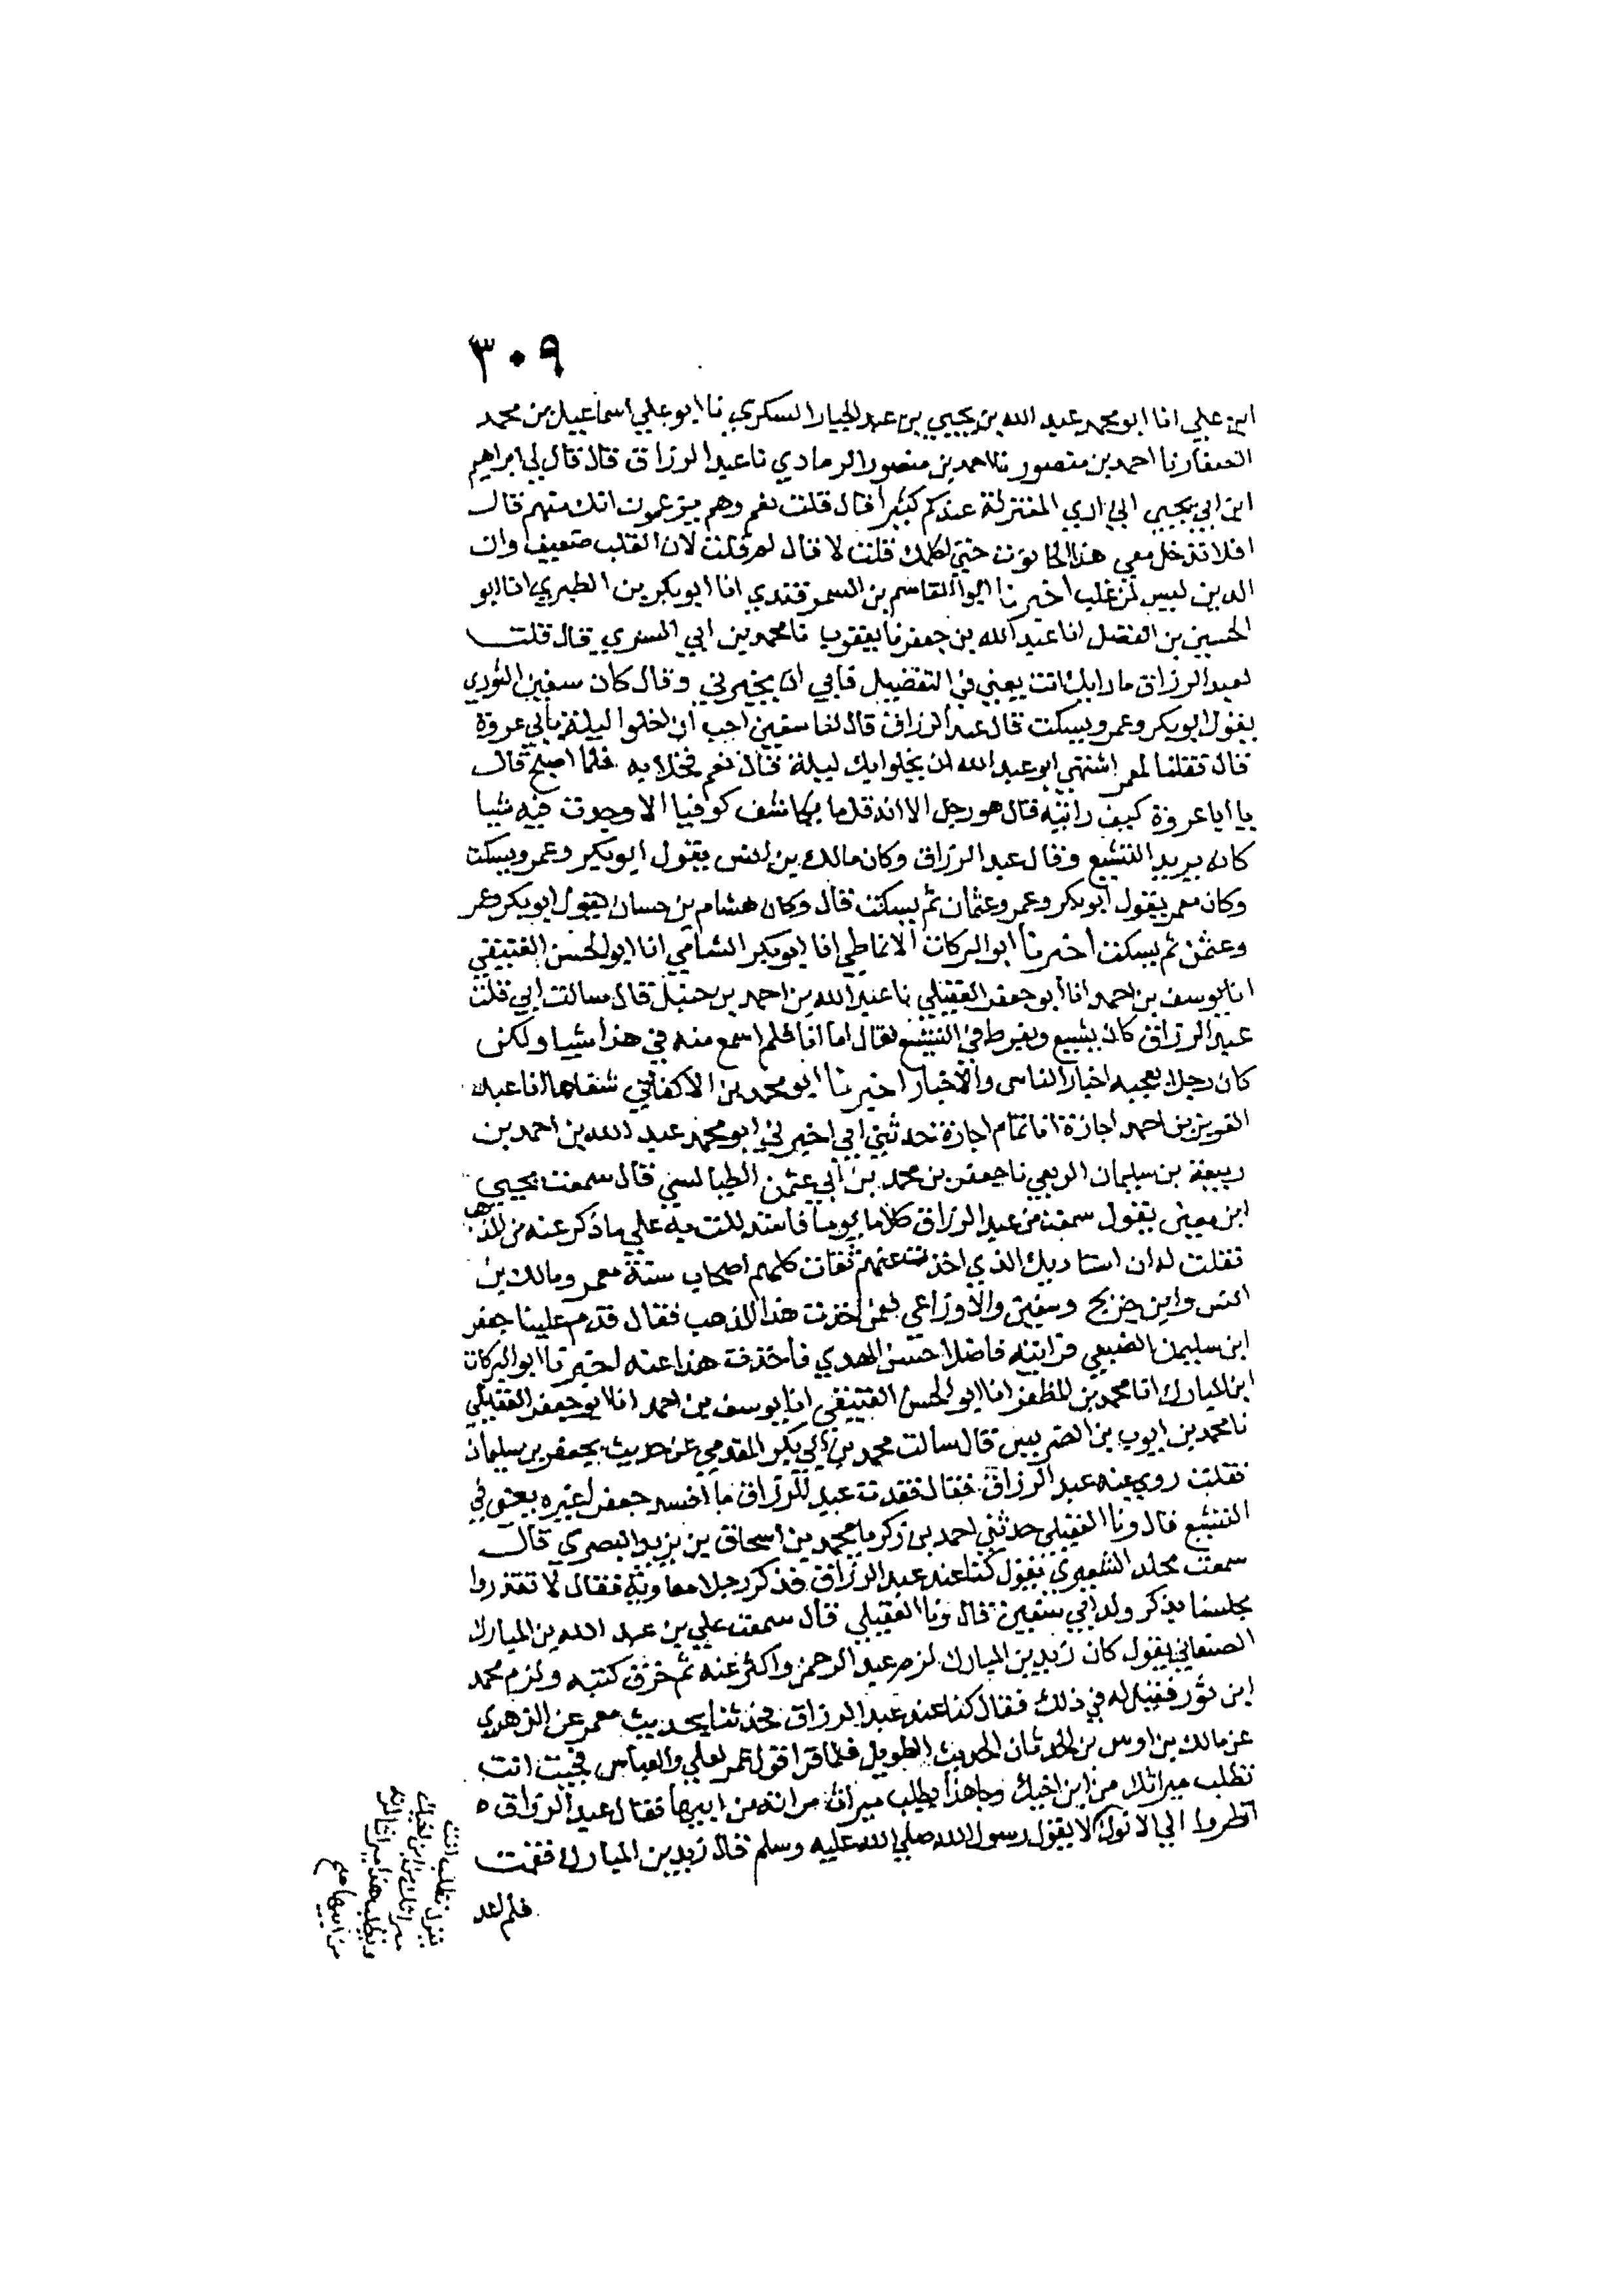 ٣٠٩
ابن علي انا ابو محمد عبد الله بن يحيي بن عبد الجبار السكري نا ابو علي اسماعيل بن محمد
الصفار نا احمد بن منصور نا احمد بن منصور الرمادي نا عبد الرزاق قال قال لي ابراهيم
ابن ابي يحيي اني اري المعتزلة عندكم كثيرا قال قلت نعم وهم يزعمون انك منهم قال
افلا تدخل معي هذا الحانوت حتي اكلمك قلت لا قال لم قلت لان القلب ضعيف وان
الدين ليس لمن غلب اخبرنا ابو القاسم بن السمرقندي انا ابو بكر بن الطبري انا ابو
الحسين بن الفضل انا عبد الله بن جعفر نا يعقوب نا محمد بن ابي السري قال قلت
لعبد الرزاق ما رايك انت يعني في التفضيل فابي ان يخبرني وقال كان سفين الثوري
يقول ابو بكر وعمر ويسكت قال عبد الرزاق قال لنا سفين احب ان اخلوا ليلة بابي عروة
قال فقلنا لمعمر اشتهي ابو عبد الله ان يخلوا بك ليلة قال نعم فخلا به فلما اصبح قال
يا ابا عروة كيف رايته قال هو رجل الا انه قل ما يكاشف كوفيا الا وجدت فيه شيا
كانه يريد التشيع وقال عبد الرزاق وكان مالك بن انس يقول ابو بكر وعمر ويسكت
وكان معمر يقول ابو بكر وعمر وعثمان ثم يسكت قال وكان هشام بن حسان يقول ابو بكر وعمر
وعثمن ثم يسكت اخبرنا ابو البركات الانماطي انا ابو بكر الشامي انا ابو الحسن العتيقي
انا يوسف بن احمد انا ابو جعفر العقيلي نا عبد الله بن احمد بن حنبل قال سالت ابي قلت
عبد الرزاق كان يتشيع ويفرط في التشيع فقال اما انا فلم اسمع منه في هذا شيا ولكن
كان رجلا يعجبه اخبار الناس والاخبار اخبرنا ابو محمد بن الاكفاني شفاها انا عبد
العزيز بن احمد اجازة انا تمام اجازة حدثني ابي اخبرني ابو محمد عبد الله بن احمد بن
ربيعة بن سليمان الربعي نا جعفر بن محمد بن ابي عثمن الطيالسي قال سمعت يحيي
ابن معين يقول سمعت من عبد الرزاق كلاما يوما فاستدللت به علي ما ذكر عنه من المذهب
فقلت له ان استاديك الذي اخذت عنهم ثقات كلهم اصحاب سنة معمر ومالك بن
انس وابن جريج وسفين والاوزاعي فعمن اخذت هذا المذهب فقال قدم علينا جعفر
ابن سليمن الضبعي فرايته فاضلا حسن الهدي فاخذت هذا عنه اخبرنا ابو البركات
ابن المبارك انا محمد بن المظفر انا ابو الحسن العتيقي انا يوسف بن احمد انا ابو جعفر العقيلي
نا محمد بن ايوب بن الضريس قال سالت محمد بن ابي بكر المقدمي عن حديث لجعفر بن سليمان
فقلت روي عنه عبد الرزاق فقال فقدت عبد الرزاق ما افسد جعفر غيره يعني في
التشيع قال ونا العقيلي حدثني احمد بن زكريا محمد بن اسحاق بن يزيد البصري قال
سمعت مخلد الشعيري يقول كنا عند عبد الرزاق فذكر رجلا معاوية فقال لا تقذروا
مجلسنا بذكر ولد ابي سفين قال ونا العقيلي قال سمعت علي بن عبد الله بن المبارك
الصنعاني يقول كان زيد بن المبارك لزم عبد الرحمن واكثر عنه ثم خرق كتبه ولزم محمد
ابن ثور فقيل له في ذلك فقال كنا عند عبد الرزاق فحدثنا بحديث معمر عن الزهري
عن مالك بن اوس بن الحدثان الحديث الطويل فلما قرا قول عمر لعلي والعباس فجيت انت
تطلب ميراثك من ابن اخيك وجا هذا يطلب ميراث مراته من ابيها فقال عبد الرزاق ه
انظروا الي الانوك لا يقول رسول الله صلي الله عليه وسلم قال زيد بن المبارك فقمت
فلم اعد
تطلب انت
ميراثك من ابن اخيك
ويطلب هذا ميراث امراته
من ابيها صح